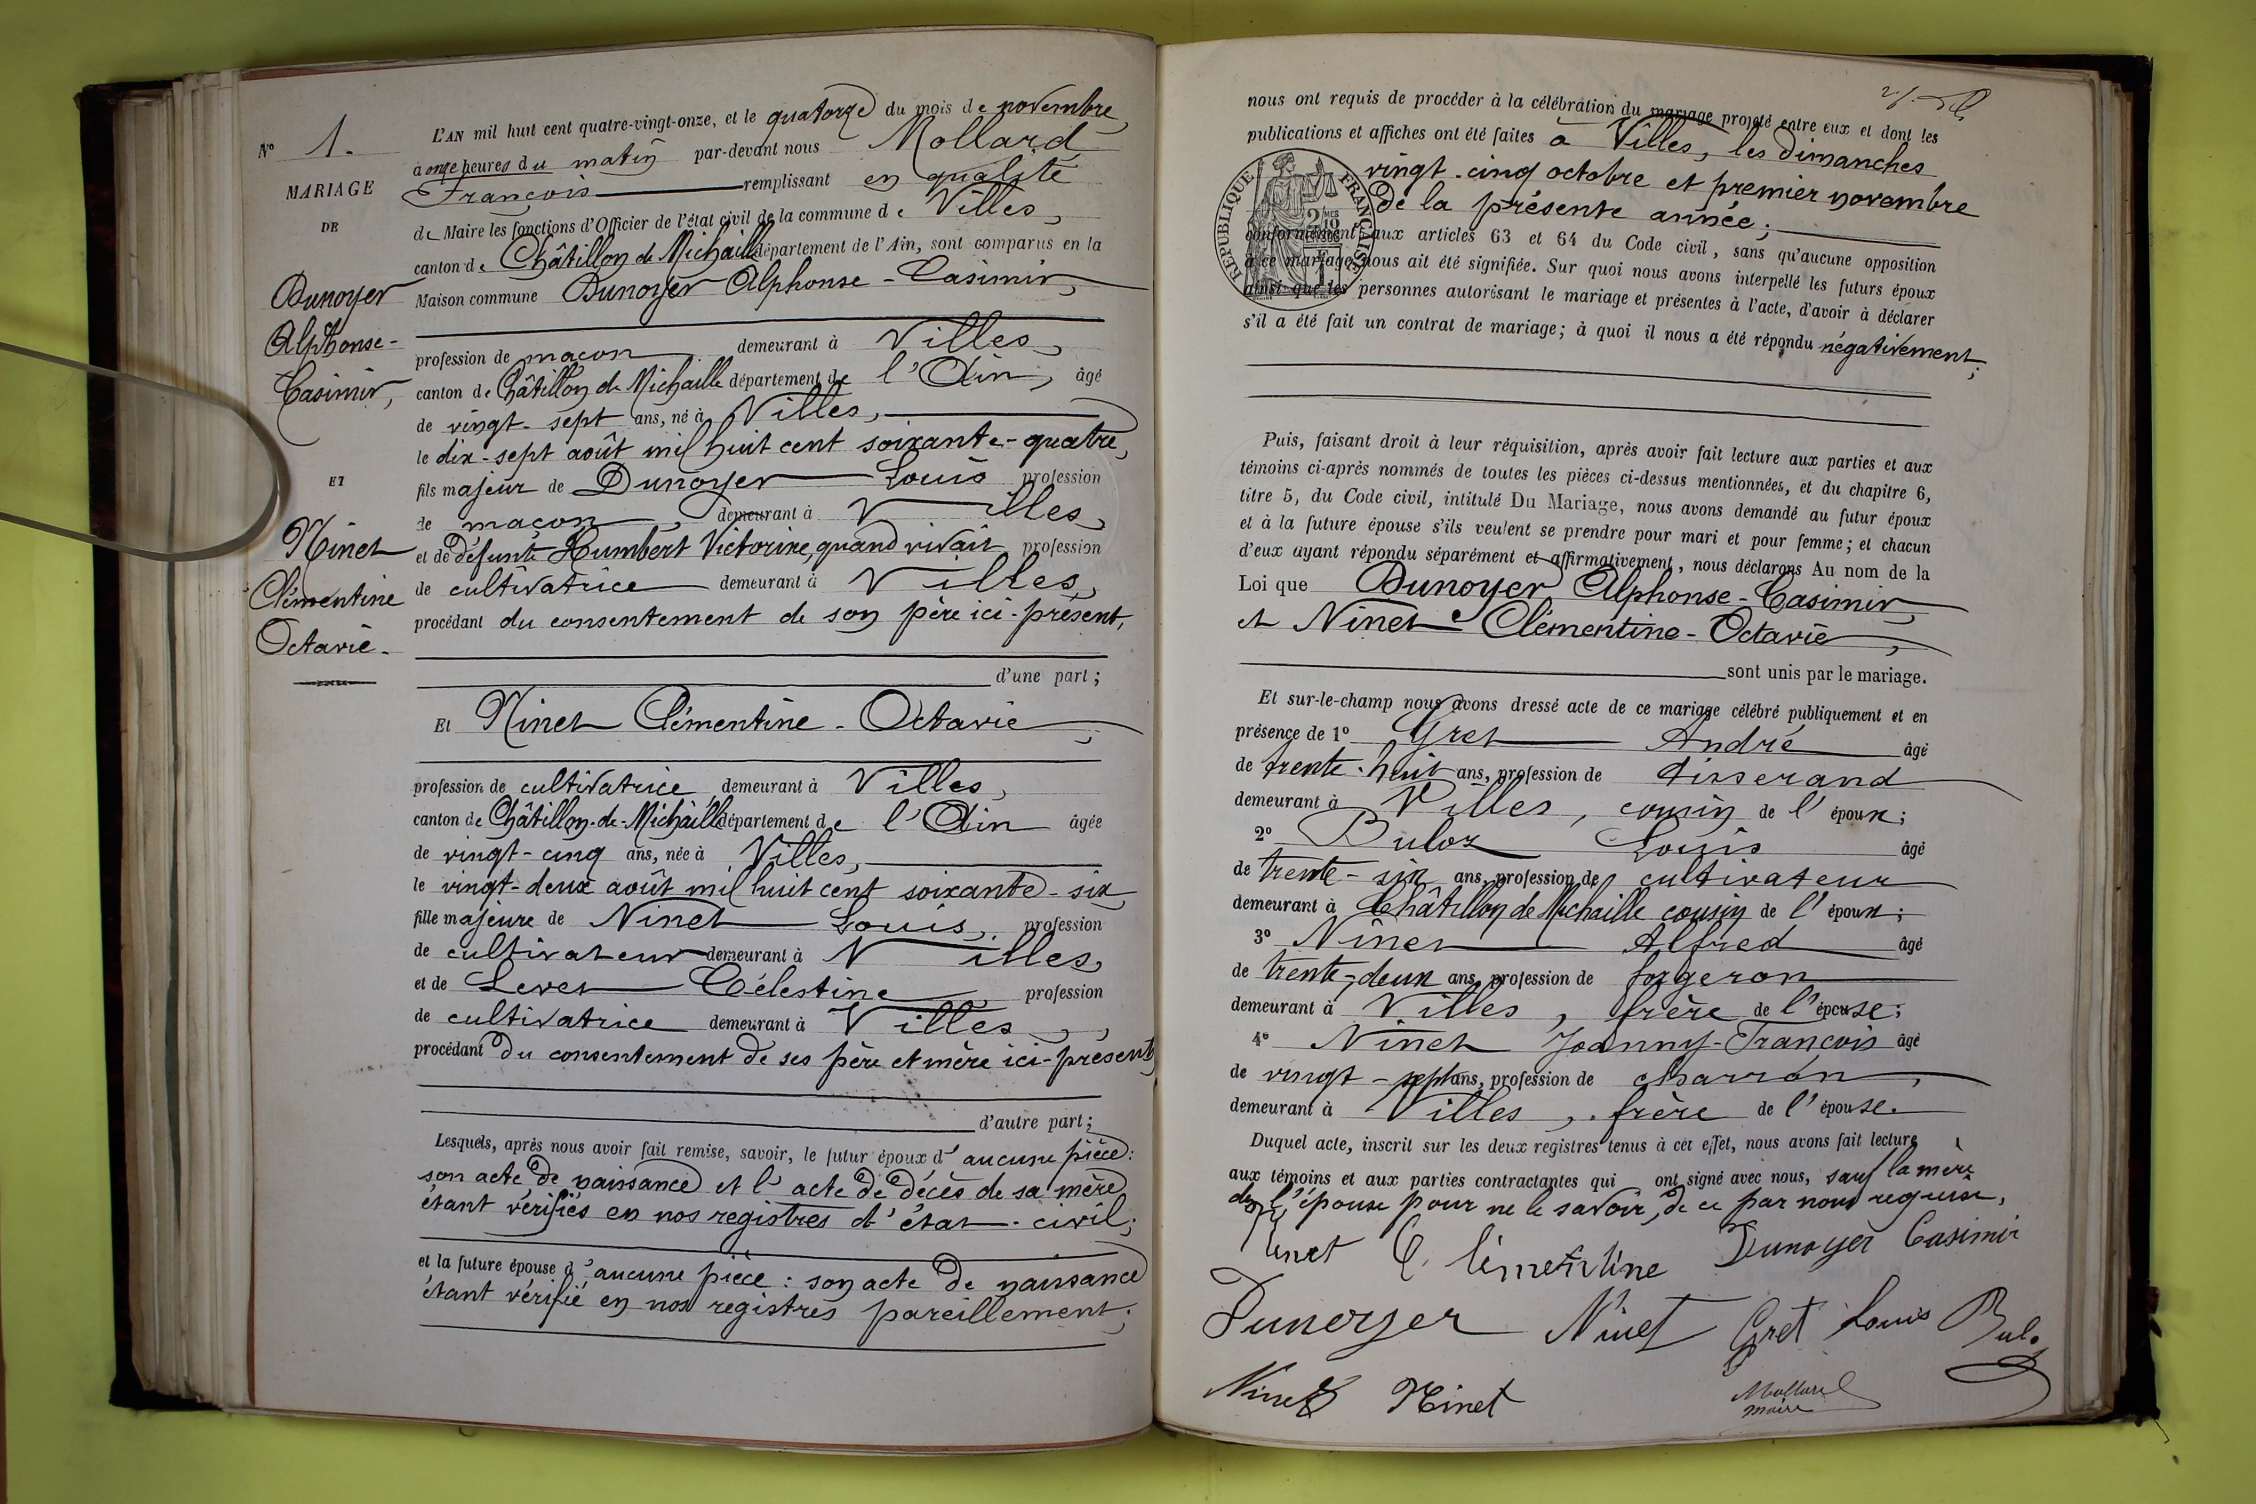 L'AN mil huit cent quatre-vingt-onze, et le quatorze du mois de novembre
Nº 1.
à onze heures du matin par-devant nous Mollard
MARIAGE
François remplissant en qualité
DE
de Maire les fonctions d'Officier de l'état civil de la commune de Villes,
canton de Châtillon de Michaille département de l'Ain, sont comparus en la
Dunoyer
Maison commune Dunoyer Alphonse-Casimir,
Alphonse-
profession de maçon demeurant à Villes,
Casimir,
canton de Châtillon de Michaille département de l'Ain, âgé
de vingt-sept ans, né à Villes,
le dix-sept août mil huit cent soixante-quatre,
ET
fils majeur de Dunoyer Louis profession
de maçon, demeurant à Villes,
Ninet
et de défunte Humbert Victorine, quand vivait profession
Clémentine
de cultivatrice demeurant à Villes,
Octavie.
procédant du consentement de son père ici-présent,
d'une part;
Et Ninet Clémentine-Octavie,
profession de cultivatrice, demeurant à Villes,
canton de Châtillon-de-Michaille département de l'Ain âgée
de vingt-cinq ans, née à Villes,
le vingt-deux août mil huit cent soixante-six
fille majeure de Ninet Louis, profession
de cultivateur demeurant à Villes,
et de Levet Célestine, profession
de cultivatrice demeurant à Villes,
procédant du consentement de ses père et mère ici-présents
d'autre part;
Lesquels, après nous avoir fait remise, savoir, le futur époux d'aucune pièce:
son acte de naissance et l'acte de décès de sa mère
étant vérifiés en nos registres d'état-civil;
et la future épouse d'aucune pièce: son acte de naissance
étant vérifié en nos registres pareillement;
nous ont requis de procéder à la célébration du mariage projeté entre eux et dont les
publications et affiches ont été faites à Villes, les dimanches
vingt-cinq octobre et premier novembre
de la présente année;
RÉPUBLIQUE FRANÇAISE
conformément aux articles 63 et 64 du Code civil, sans qu'aucune opposition
à ce mariage nous ait été signifiée. Sur quoi nous avons interpellé les futurs époux
ainsi que les personnes autorisant le mariage et présentes à l'acte, d'avoir à déclarer
s'il a été fait un contrat de mariage; à quoi il nous a été répondu négativement;
Puis, faisant droit à leur réquisition, après avoir fait lecture aux parties et aux
témoins ci-après nommés de toutes les pièces ci-dessus mentionnées, et du chapitre 6,
titre 5, du Code civil, intitulé Du Mariage, nous avons demandé au futur époux
et à la future épouse s'ils veulent se prendre pour mari et pour femme; et chacun
d'eux ayant répondu séparément et affirmativement, nous déclarons Au nom de la
Loi que Dunoyer Alphonse-Casimir,
et Ninet Clémentine-Octavie,
sont unis par le mariage.
Et sur-le-champ nous avons dressé acte de ce mariage célébré publiquement et en
présence de 1º Gret André âgé
de trente-huit ans, profession de tisserand
demeurant à Villes, cousin de l'époux;
2º Buloz Louis âgé
de trente-six ans, profession de cultivateur
demeurant à Châtillon de Michaille cousin de l'époux;
3º Ninet Alfred âgé
de trente-deux ans, profession de forgeron
demeurant à Villes, frère de l'épouse;
4º Ninet Joanny-François âgé
de vingt-sept ans, profession de charron,
demeurant à Villes, frère de l'épouse.
Duquel acte, inscrit sur les deux registres tenus à cet effet, nous avons fait lecture
aux témoins et aux parties contractantes qui ont signé avec nous, sauf la mère
de l'épouse pour ne le savoir, de ce par nous requise,
Ninet Clémentine Dunoyer Casimir
Dunoyer Ninet Gret Louis Buloz
Ninet Ninet Mollard
maire